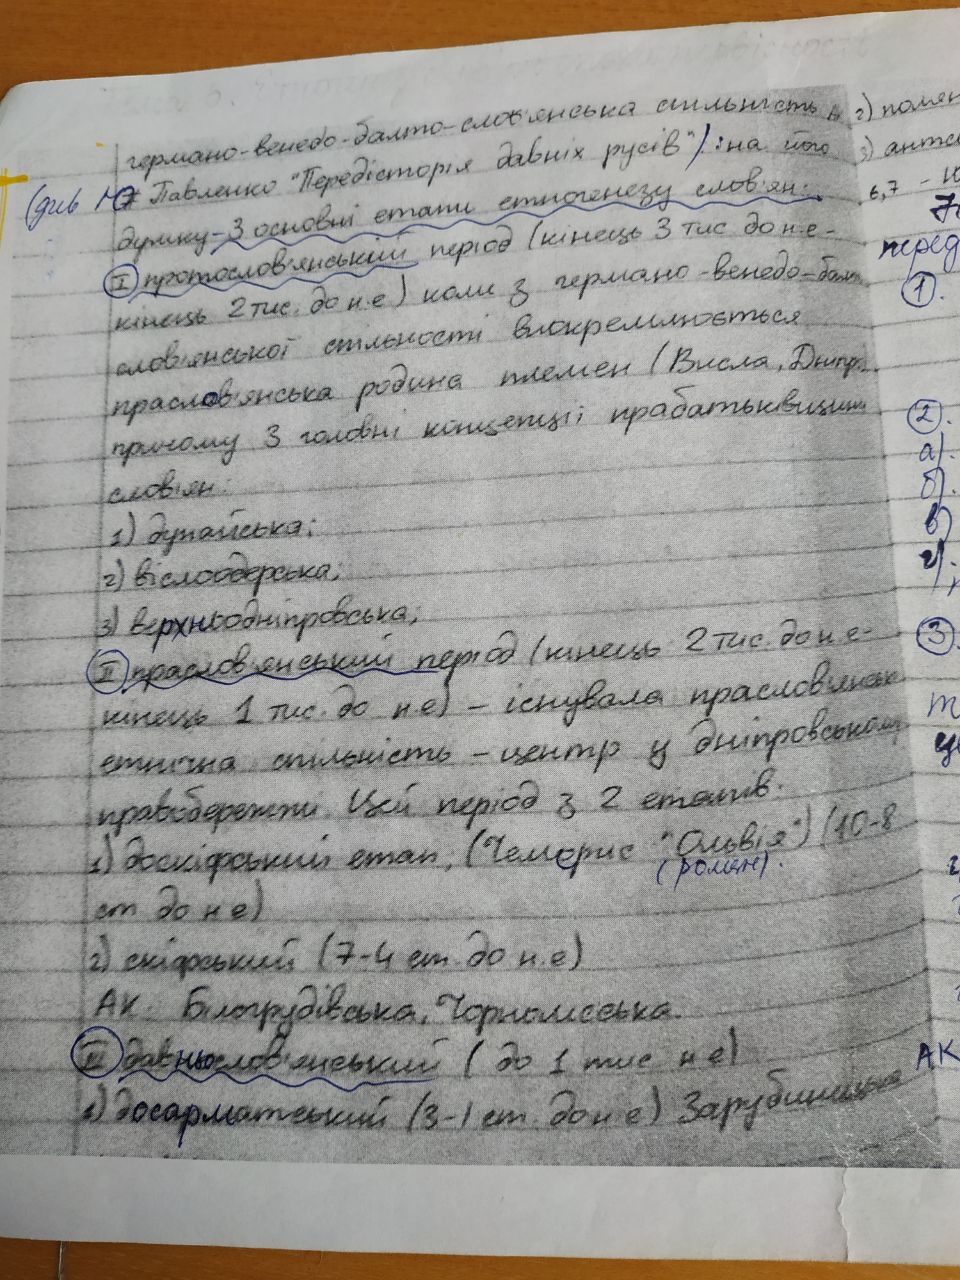 германо-венедо-балто-слов'янська спільність
(див Ю Павленко "Передісторія давніх русів"): на його
думку - 3 основні етапи етногенезу слов'ян:
I протослов'янський період (кінець 3 тис до н.е -
кінець 2 тис. до н.е) коли з германо-венедо-балт
слов'янської спільності виокремлюється
праслов'янська родина племен (Висла, Дніпр
причому 3 головні концепції прабатьківщини
слов'ян:
1) дунайська;
2) віслоодерська;
3) верхньодніпровська;
II праслов'янський період (кінець 2 тис. до н.е-
кінець 1 тис. до н.е) - існувала праслов'янськ
етнічна спільність - центр у дніпровському
правобережжі. Цей період з 2 етапів.
1) доскіфський етап, (Чемерис "Ольвія") (10-8
(роман).
ст до н е)
2) скіфський (7-4 ст. до н.е)
АК. Білогрудівська, Чорноліська.
III давньослов'янський ( до 1 тис н е)
1) досарматський (3-1 ст. до н е) Зарубинецька
2) помен
3) антс
6,7 -
перед
1.
2.
а).
б).
в)
г).
3
АК